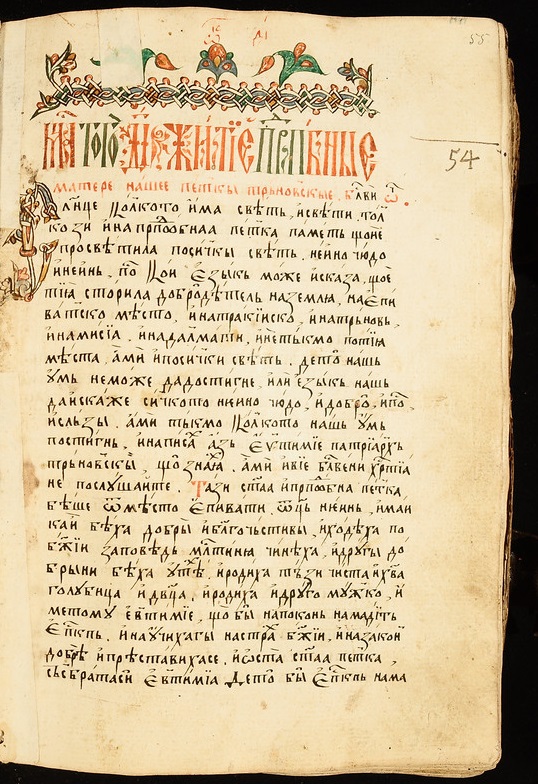 55
54
мѧ҃ того҃ д҃і житїе прпⷣбниѥ
матере нашее петкы търновскые. бл҃ви ѿ.
лнце цолкото има свѣтъ, и свѣти. тол
козѝ и на прпⷣобнаа петка паметь. що нѐ
просвѣтила посички свѣть. нейно чюдо
и нейнь. по цои езыкъ може исказа. щое
тїа сторила добродѣтель на землѧ, на епи
ватско мѣсто, и на тракїиско, и на трьновь,
и на мисїа, и на далматїи. и не тькмо потїѧ
мѣста, ами и посички свѣть. дето нашь
умь не може да достигне, или езыкь нашь
да искаже сичкото нейно чюдо, и добро, и по,
и сльзы. ами тькмо цолкото нашь умь
постигнь, и написа азь еѵтимїе патрїархь
трьновскы, що знаѧ. ами и вїе бл҃вени хрⷭтїа
не послушайте. Тази ст҃аа и прпⷣобна петка,
бѣше ѿ мѣсто епивати, ѿць нейнь, и май
каи бѣха добры и благочьстивы, и ходѣха по
бж҃їи заповѣдь мл҃тинꙗ чинѣха, и другы до
брыни бѣха утѣ. и родиха тъзи чиста и хва
голубица и дв҃ца. и родиха и друго мужко, и
метому еѵтимїе, що бы напоконь на мадить
епⷭкпь. и научихагы на стра бж҃їи, и на законь
добрѣ и прѣставихасе, и ѡста ст҃аа петка,
сьсь брата си еѵтимїа дето бы епⷭкпь на ма